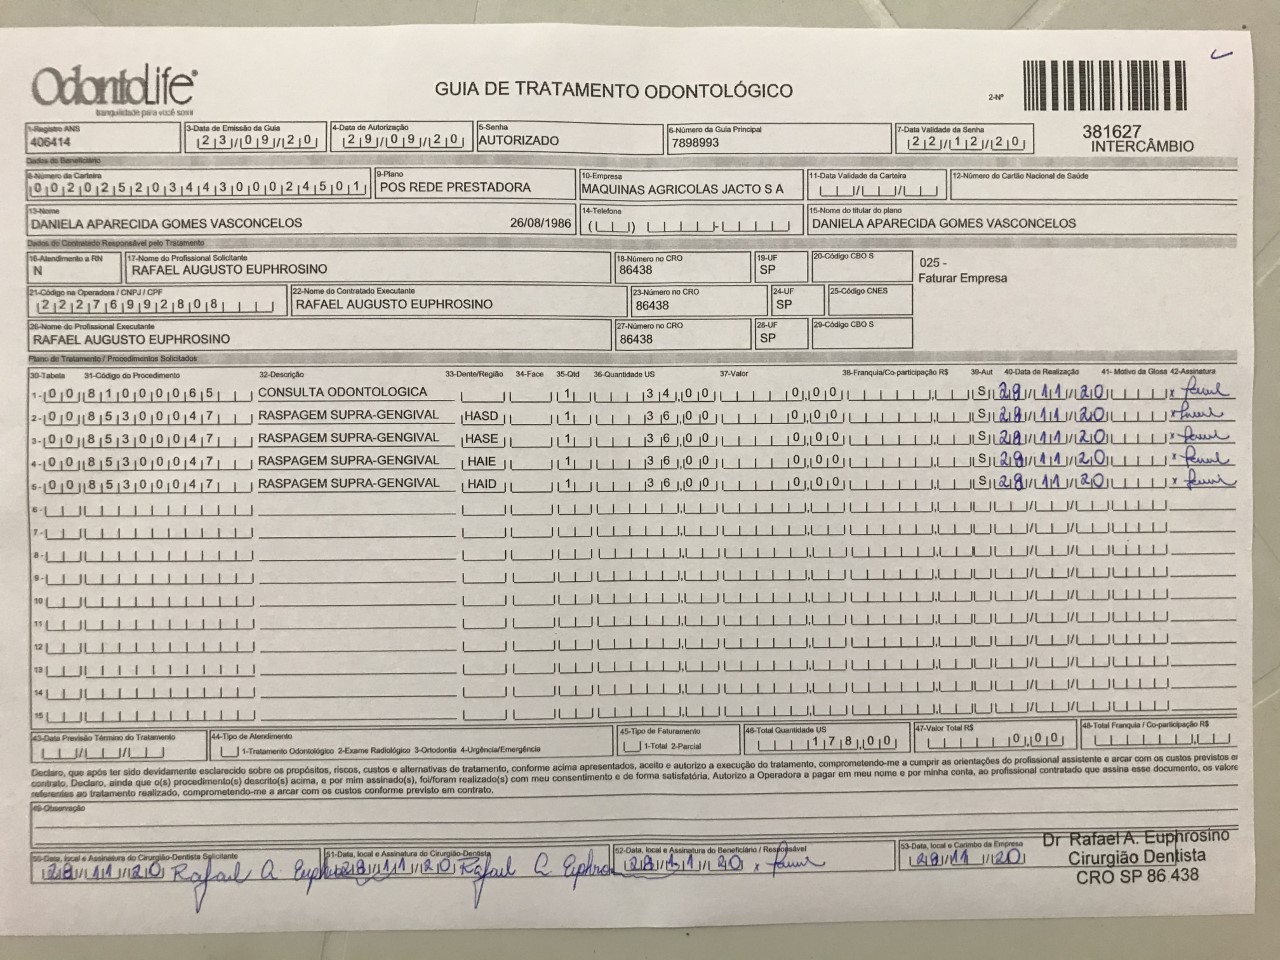 OdontoLife
tranquilidade para você sorrir
GUIA DE TRATAMENTO ODONTOLÓGICO
2-Nº
381627
INTERCÂMBIO
1-Registro ANS
406414
3-Data de Emissão da Guia
23/09/20
4-Data de Autorização
29/09/20
5-Senha
AUTORIZADO
6-Número da Guia Principal
7898993
7-Data Validade da Senha
22/12/20
Dados do Beneficiário
8-Número da Carteira
00202520344300024501
9-Plano
POS REDE PRESTADORA
10-Empresa
MAQUINAS AGRICOLAS JACTO S A
11-Data Validade da Carteira
12-Número do Cartão Nacional de Saúde
13-Nome
DANIELA APARECIDA GOMES VASCONCELOS 26/08/1986
14-Telefone
15-Nome do titular do plano
DANIELA APARECIDA GOMES VASCONCELOS
Dados do Contratado Responsável pelo Tratamento
16-Atendimento a RN
N
17-Nome do Profissional Solicitante
RAFAEL AUGUSTO EUPHROSINO
18-Número no CRO
86438
19-UF
SP
20-Código CBO S
025 -
Faturar Empresa
21-Código na Operadora / CNPJ / CPF
22276992808
22-Nome do Contratado Executante
RAFAEL AUGUSTO EUPHROSINO
23-Número no CRO
86438
24-UF
SP
25-Código CNES
26-Nome do Profissional Executante
RAFAEL AUGUSTO EUPHROSINO
27-Número no CRO
86438
28-UF
SP
29-Código CBO S
Plano de Tratamento / Procedimentos Solicitados
30-Tabela 31-Código do Procedimento 32-Descrição 33-Dente/Região 34-Face 35-Qtd 36-Quantidade US 37-Valor 38-Franquia/Co-participação R$ 39-Aut 40-Data de Realização 41- Motivo da Glosa 42-Assinatura
1- 00 81000065 CONSULTA ODONTOLOGICA 1 34,00 0,00 S 28/11/20 x
2- 00 85300047 RASPAGEM SUPRA-GENGIVAL HASD 1 36,00 0,00 S 28/11/20 x
3- 00 85300047 RASPAGEM SUPRA-GENGIVAL HASE 1 36,00 0,00 S 28/11/20 x
4- 00 85300047 RASPAGEM SUPRA-GENGIVAL HAIE 1 36,00 0,00 S 28/11/20 x
5- 00 85300047 RASPAGEM SUPRA-GENGIVAL HAID 1 36,00 0,00 S 28/11/20 x
6-
7-
8-
9-
10
11
12
13
14
15
43-Data Previsão Término do Tratamento
44-Tipo de Atendimento
1-Tratamento Odontológico 2-Exame Radiológico 3-Ortodontia 4-Urgência/Emergência
45-Tipo de Faturamento
1-Total 2-Parcial
46-Total Quantidade US
178,00
47-Valor Total R$
0,00
48-Total Franquia / Co-participação R$
Declaro, que após ter sido devidamente esclarecido sobre os propósitos, riscos, custos e alternativas de tratamento, conforme acima apresentados, aceito e autorizo a execução do tratamento, comprometendo-me a cumprir as orientações do profissional assistente e arcar com os custos previstos
contrato. Declaro, ainda que o(s) procedimento(s) descrito(s) acima, e por mim assinado(s), foi/foram realizado(s) com meu consentimento e de forma satisfatória. Autorizo a Operadora a pagar em meu nome e por minha conta, ao profissional contratado que assina esse documento, os valore
referentes ao tratamento realizado, comprometendo-me a arcar com os custos conforme previsto em contrato.
49-Observação
50-Data, local e Assinatura do Cirurgião-Dentista Solicitante
28/11/20 Rafael A. Euph
51-Data, local e Assinatura do Cirurgião-Dentista
28/11/20 Rafael A. Euphro
52-Data, local e Assinatura do Beneficiário / Responsável
28/11/20 x
53-Data, local e Carimbo da Empresa
28/11/20
Dr Rafael A. Euphrosino
Cirurgião Dentista
CRO SP 86 438